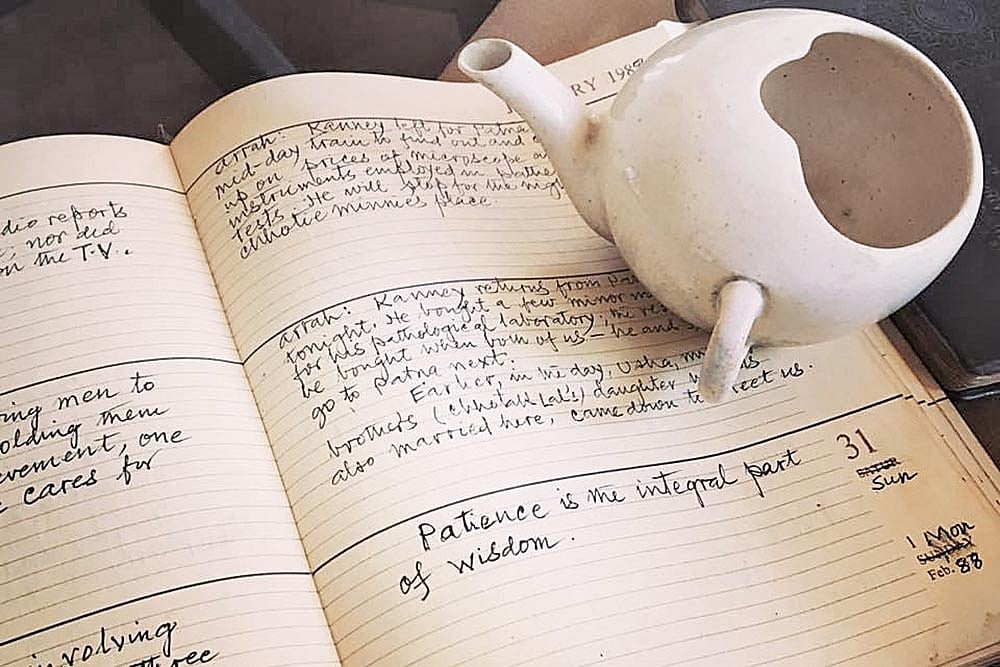 dio reports
nor did
on the T.V..
ing men to
olding them
evement, one
cares for
involving
RY 198
arrah: Kanney left for Patna
mid-day train to find out and
up on prices of microscope
instruments employed in
tests. He will stop for the
chhotie minnie's place.
arrah: Kanney returns from
tonight. He bought a few minor
for his pathological laboratory; the
be bought when both of us — he and
go to Patna next.
Earlier, in the day, Usha,
brothers (chhotak Lal's) daughter
also married here, came down to meet us.
Patience is the integral part
of wisdom.
31
Sun
1 Mon
Feb. 88